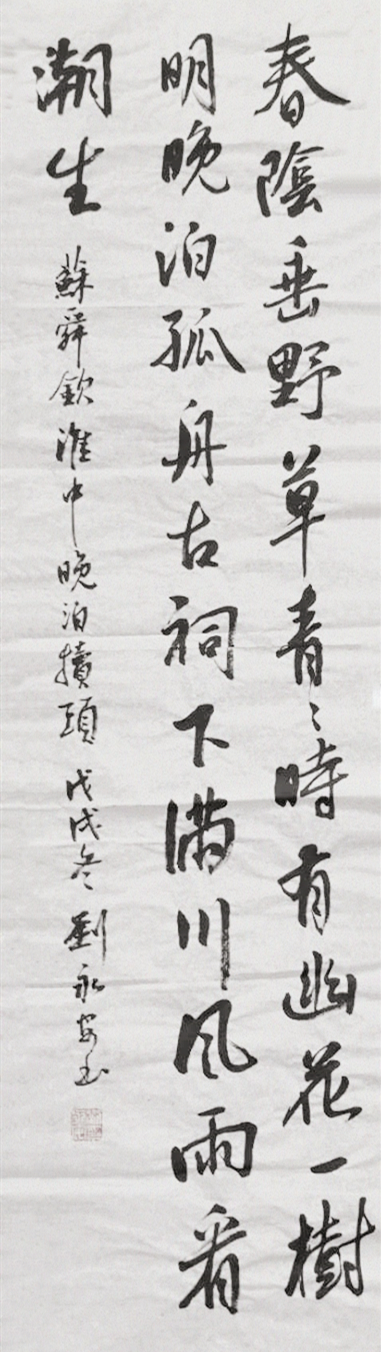 春陰垂野草青〻時有幽花一樹
明晚泊孤舟古祠下滿川風雨看
潮生
蘇舜欽淮中晚泊犢頭 戊戌冬 劉永安書